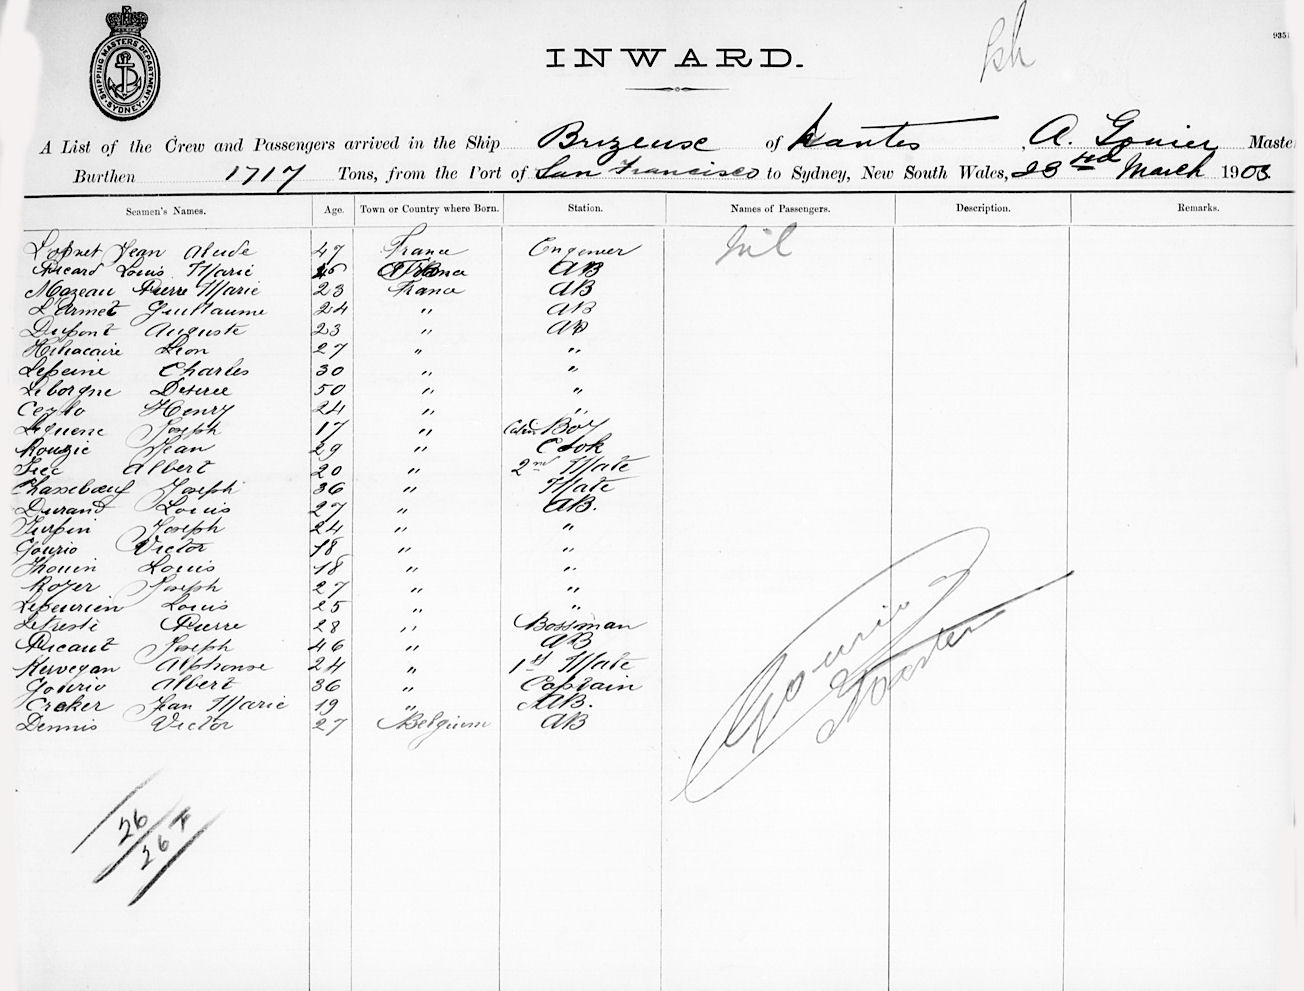 SHIPPING MASTERS DEPARTMENT. SYDNEY.
INWARD.
A List of the Crew and Passengers arrived in the Ship Brizeuse of Nantes, A. Gourio Master
Burthen 1717 Tons, from the Port of San Francisco to Sydney, New South Wales, 23rd March 1903
Seamen's Names. Age. Town or Country where Born. Station. Names of Passengers. Description. Remarks.
Jean 47 France Engineer nil
Picard Louis Marie France AB
Mazeau Pierre Marie 23 France AB
L'Armet Guillaume 24 " AB
Dupont Auguste 23 " AB
Leon 27 " "
Lepeine Charles 30 " "
Leborgne Desiree 50 " "
Henry 24 " "
Joseph 17 " Cabin Boy
Rouzic Jean 29 " Cook
Albert 20 " 2nd Mate
Chasseboeuf Joseph 36 " Mate
Durand Louis 27 " AB.
Turpin Joseph 24 " "
Gourio Victor 18 " "
Thouin Louis 18 " "
Royer Joseph 27 " "
Lepeurien Louis 25 " "
Letresté Pierre 28 " Bossman
Picaut Joseph 46 " AB
Kervegan Alphonse 24 " 1st Mate
Gourio Albert 36 " Captain
Croker Jean Marie 19 " AB.
Dennis Victor 27 Belgium AB
Gourio
Master
26
26 F